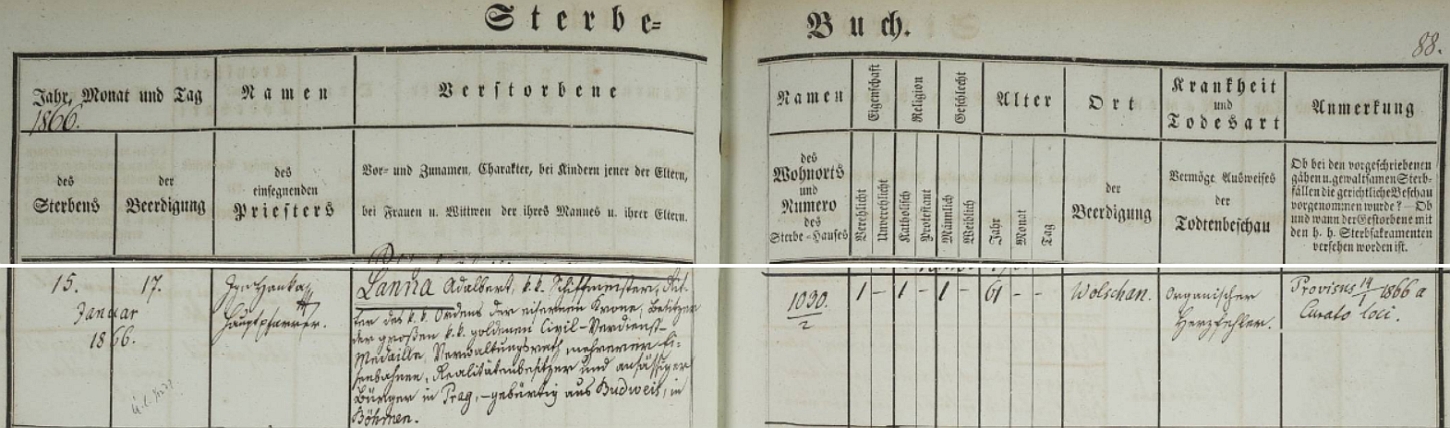 Sterbe-
Buch.
88.
Jahr, Monat und Tag
1866.
Namen
Verstorbene
des
Sterbens
der
Beerdigung
des
einsegnenden
Priesters
Vor- und Zunamen, Charakter, bei Kindern jener der Eltern,
bei Frauen u. Wittwen der ihres Mannes u. ihrer Eltern.
Namen
Eigenschaft
Religion
Geschlecht
Alter
Ort
Krankheit
und
Todesart
Anmerkung
des
Wohnorts
und
Numero
des
Sterbe-Hauses
Verehlicht
Unverehlicht
Katholisch
Protestant
Männlich
Weiblich
Jahr
Monat
Tag
der
Beerdigung
Vermöge Ausweises
der
Todtenbeschau
Ob bei den vorgeschriebenen
gähen u. gewaltsamen Sterb-
fällen die gerichtliche Beschau
vorgenommen wurde? — Ob
und wann der Gestorbene mit
den h. h. Sterbsakramenten
versehen worden ist.
15. 17.
Januar
1866.
Hauptpfarrer.
Lanna Adalbert, k.k. Schiffmeister, Rit-
ter des k.k. Ordens der eisernen Krone, Besitzer
der großen k.k. goldenen Civil-Verdienst-
Medaille, Verwaltungsrath mehrerer Ei-
senbahnen, Realitätenbesitzer und ansässiger
Bürger in Prag, - gebürtig aus Budweis, in
Böhmen.
1030.
2
1 - 1 - 1 - 61 - -
Wolschan.
Organischer
Herzfehler.
Provisus 14/1 1866 a
Curato loci.